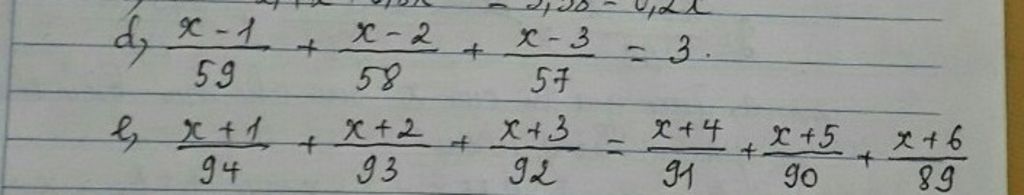 d, (x - 1)/59 + (x - 2)/58 + (x - 3)/57 = 3.
e, (x + 1)/94 + (x + 2)/93 + (x + 3)/92 = (x + 4)/91 + (x + 5)/90 + (x + 6)/89